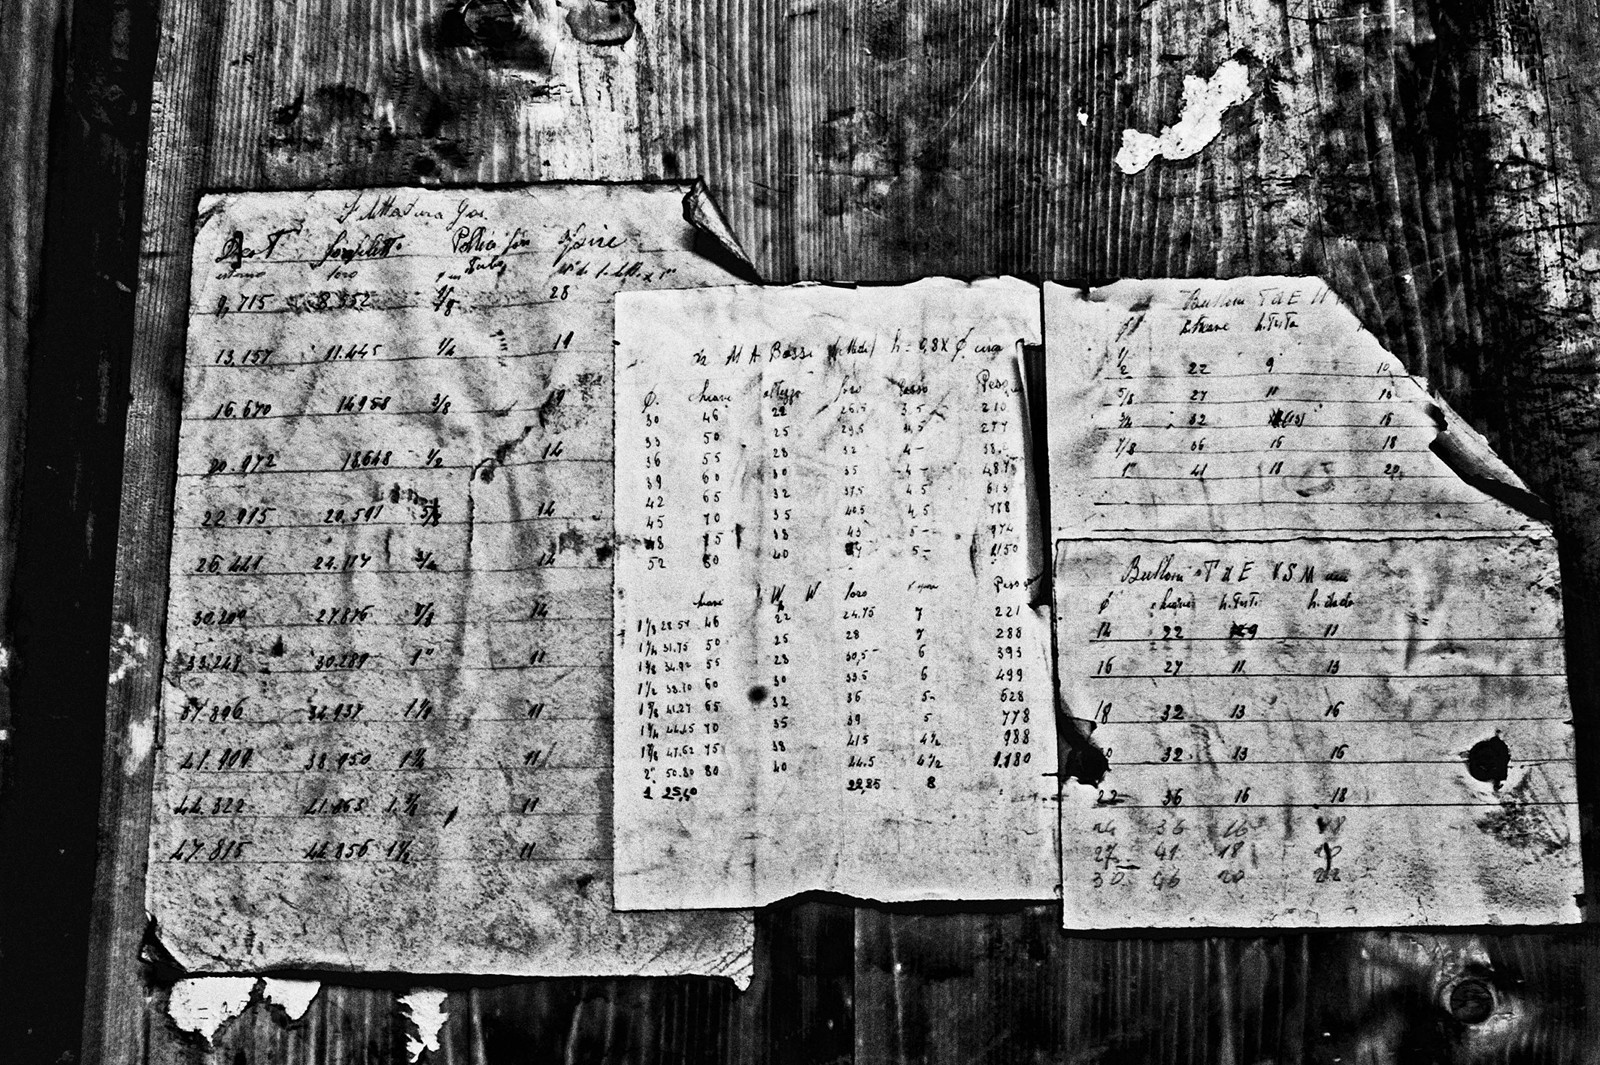 Filettatura Gas.
esterno foro
9,715 8.552 1/8 28
13.157 11.445 1/4 19
16.670 14958 3/8 19
20.972 18.648 1/2 14
22.915 20.591 5/8 14
26.441 24.117 3/4 14
30.200 27.876 7/8 14
33.248 30.289 1" 11
37.896 34.937 11
41.909 38.950 11
44.322 41.363 11
47.815 44.856 1 1/2 11
M A Bassi h = 0,8 X Ø
Ø. chiave altezza foro Peso
30 46 22 26.5 3.5 210
33 50 25 29.5 4.5 277
36 55 28 32 4-
39 60 30 35 4- 487
42 65 32 37.5 4.5 613
45 70 35 40.5 4.5 778
48 75 38 43 5- 974
52 80 40 5- 1150
chiave W foro Peso
1 1/8 28.57 46 22 24.75 7 221
1 1/4 31.75 50 25 28 7 288
1 3/8 34.92 55 28 30,5 6 393
1 1/2 38.10 60 30 33.5 6 499
1 5/8 41.27 65 32 36 5- 628
1 3/4 44.45 70 35 39 5 778
1 7/8 47.62 75 38 41.5 4 1/2 988
2" 50.80 80 40 44.5 4 1/2 1.180
1 25,40 22,25 8
Bulloni T d E W
Ø chiave h.Testa
1/2 22 9 10
5/8 27 11 13
3/4 32 (13) 16
7/8 36 16 18
1" 41 18 20
Bulloni T d E V S M
Ø chiave h.Testa h. dado
12 22 9 11
16 27 11 13
18 32 13 16
32 13 16
22 36 16 18
24 36 16 18
27 41 18
30 46 20 22